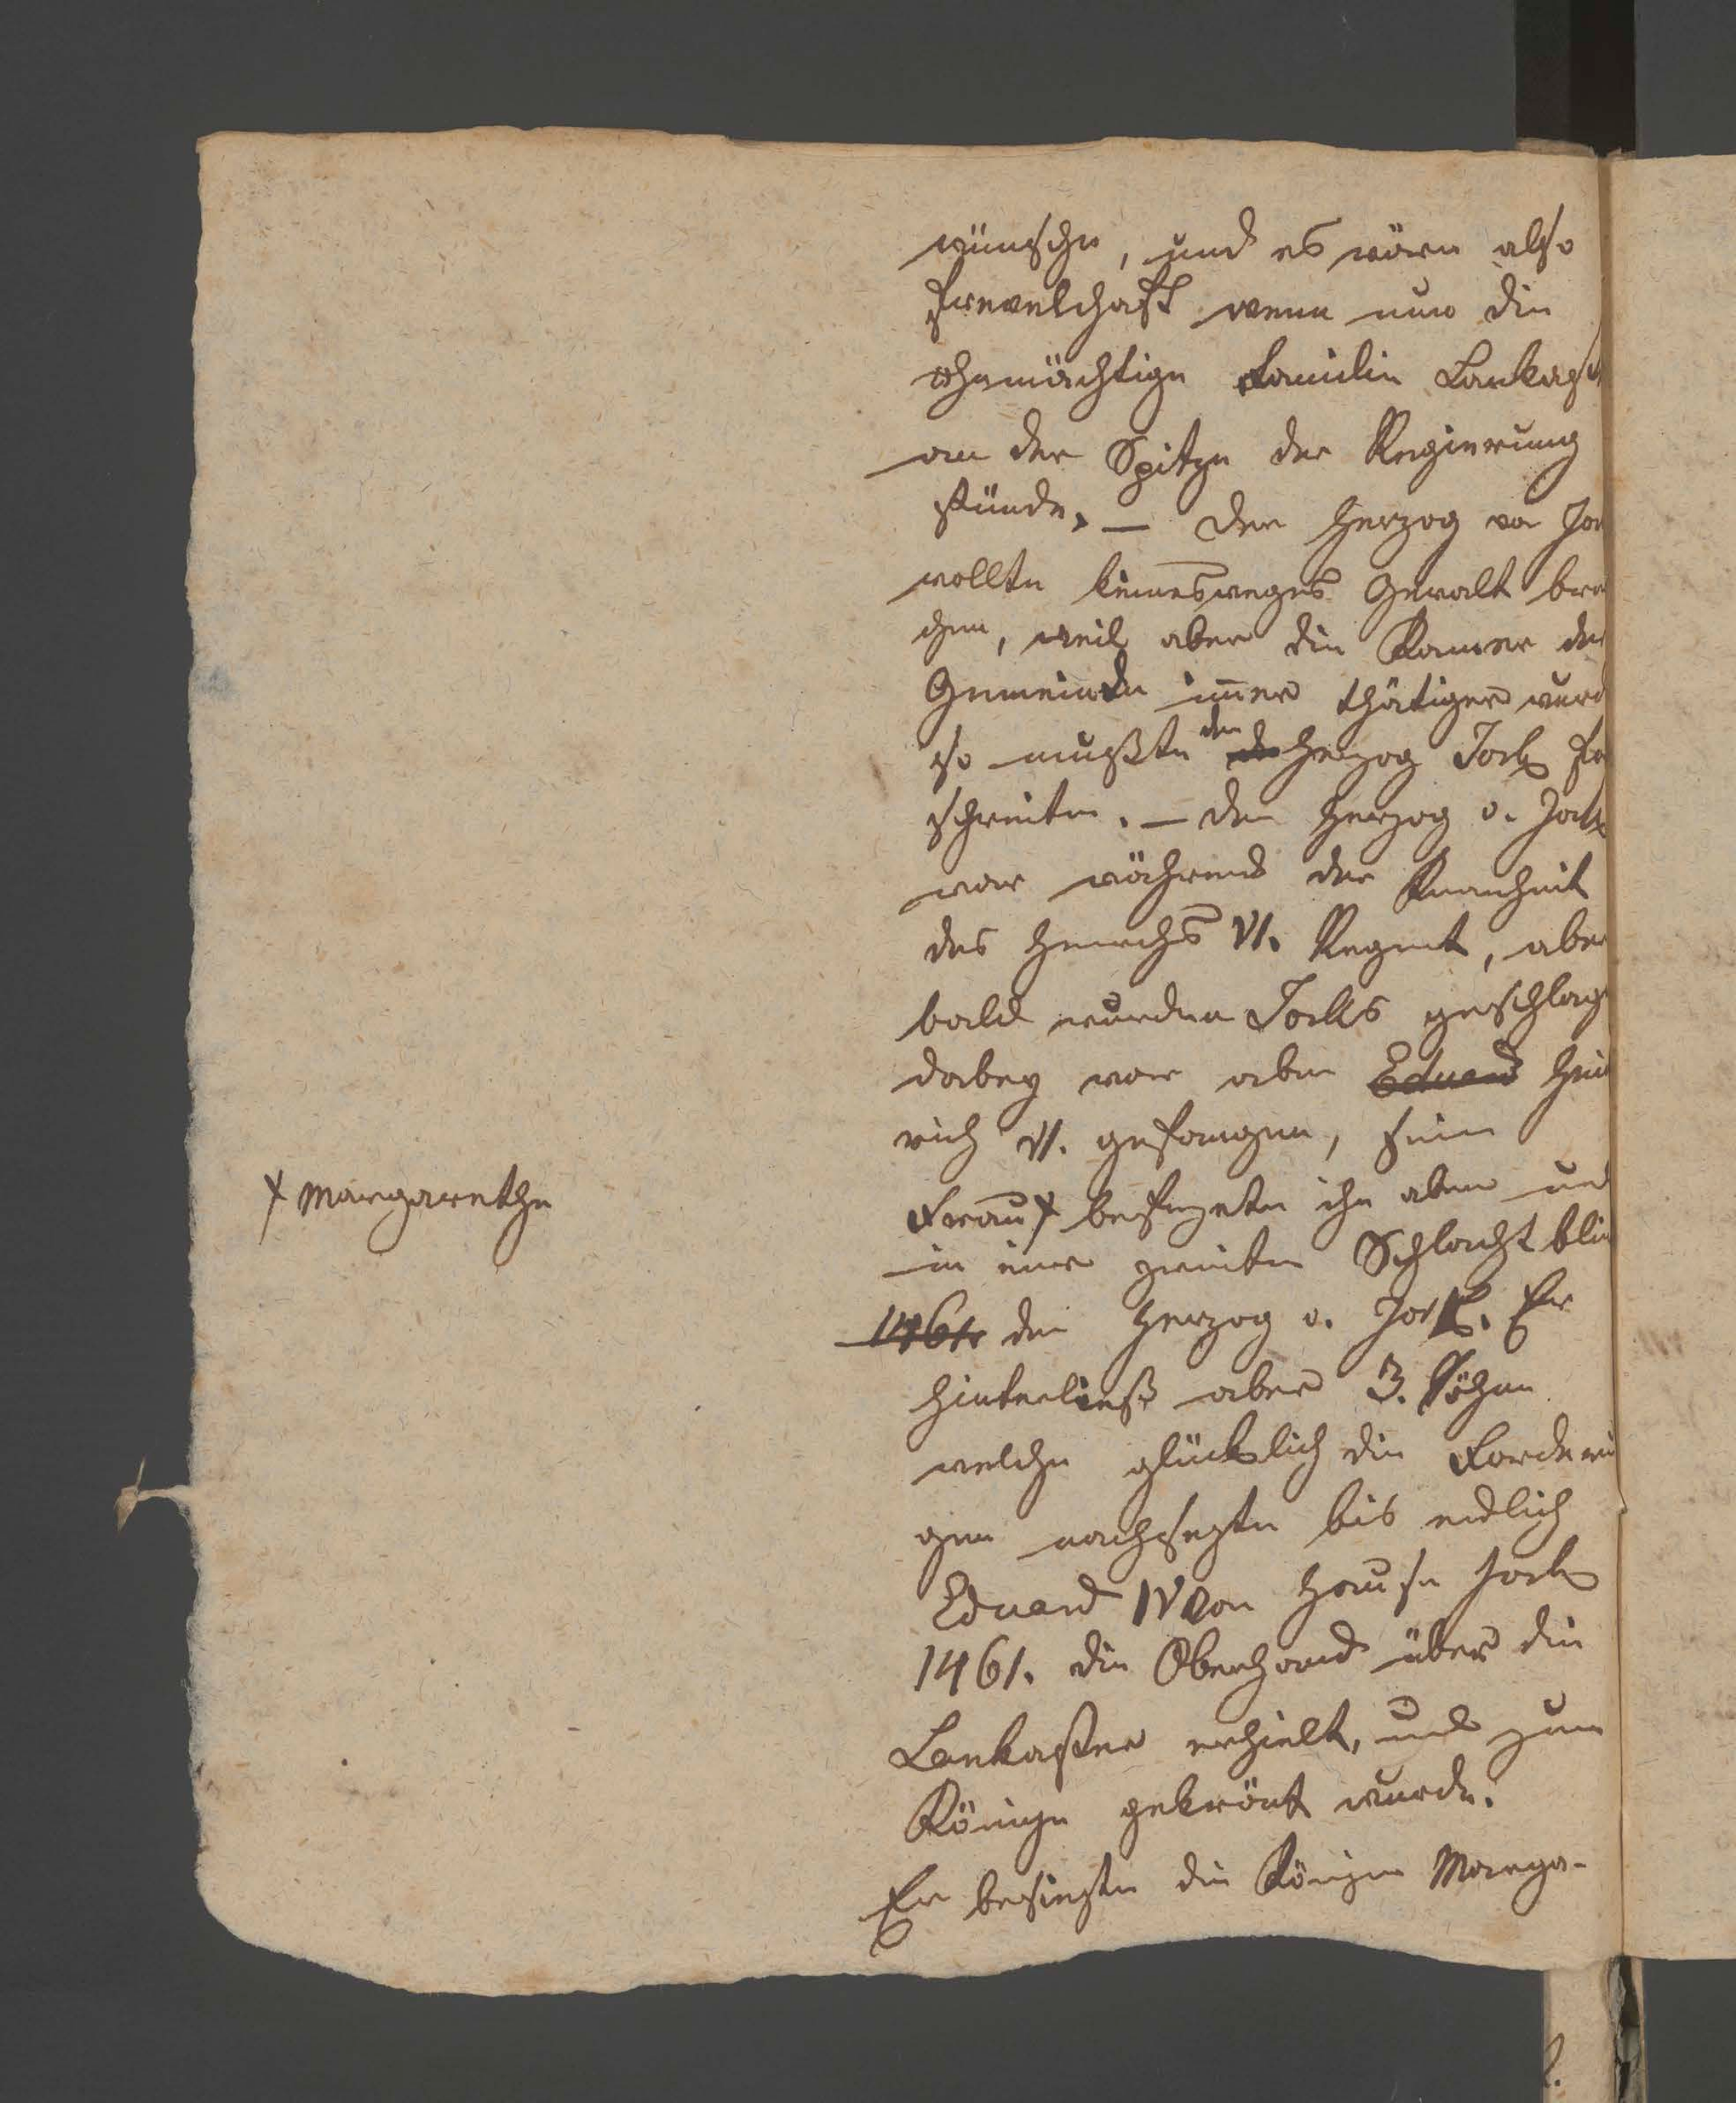 wünsche, und es wäre also
frevelhaft wenn nur die
ohnmächtige Familie Lankast
an der Spitze der Regierung
stünde. — Der Herzog von Jor
wollte keinesweges Gewalt bra
chen, weil aber die Kamer der
Gemeinde im̄er thätiger wurd
so mußte der Herzog Jork for
schreiten. — Der Herzog v. Jork
war während der Krankheit
des Heinrichs VI. Regent, aber
bald wurden Jorks geschlage
dabey war aber Eduard Hein
rich VI. gefangen, seine
Frau + befreyete ihn aber und
+ Margarethe
in einer zweiten Schlacht blie
1461 der Herzog v. Jork. Er
hinterließ aber 3. Söhne
welche glücklich die Forderun
gen nachsezten bis endlich
Eduard IV von Hause Jork
1461. die Oberhand über die
Lankaster erhielt, und zum
Könige gekrönt wurde.
Er besiegte die Königin Marga-